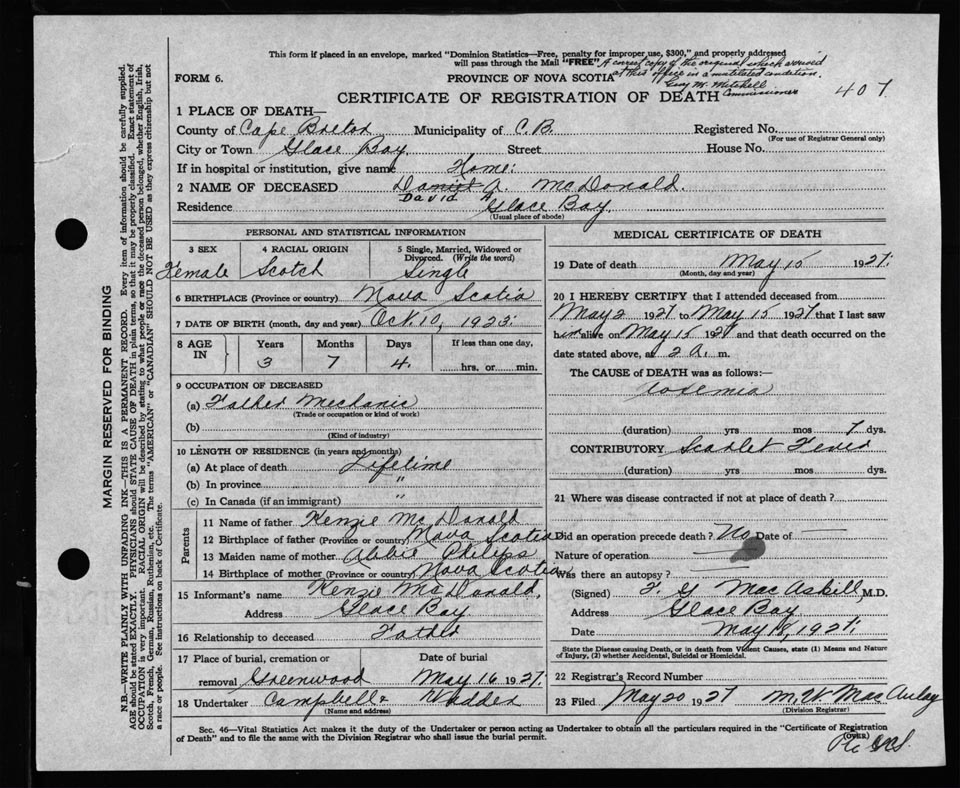 This form if placed in an envelope, marked "Dominion Statistics—Free, penalty for improper use, $300," and properly addressed
will pass through the Mail "FREE" A correct copy of the original which arrived
at this office in a mutilated condition.
Geo. M. Mitchell
Commissioner
407
FORM 6.
PROVINCE OF NOVA SCOTIA
CERTIFICATE OF REGISTRATION OF DEATH
1 PLACE OF DEATH—
County of Cape Breton Municipality of C.B. Registered No.
(For use of Registrar General only)
City or Town Glace Bay Street House No.
If in hospital or institution, give name Home.
2 NAME OF DECEASED Daniel A. McDonald.
David A
Residence Glace Bay
(Usual place of abode)
PERSONAL AND STATISTICAL INFORMATION
3 SEX 4 RACIAL ORIGIN 5 Single, Married, Widowed or Divorced. (Write the word)
Female Scotch Single
6 BIRTHPLACE (Province or country) Nova Scotia
7 DATE OF BIRTH (month, day and year) Oct. 10, 1923.
8 AGE IN Years Months Days If less than one day,
3 7 4. hrs. or min.
9 OCCUPATION OF DECEASED
(a) Father Mechanic
(Trade or occupation or kind of work)
(b)
(Kind of industry)
10 LENGTH OF RESIDENCE (in years and months)
(a) At place of death Lifetime
(b) In province "
(c) In Canada (if an immigrant) "
Parents
11 Name of father Kenzie McDonald
12 Birthplace of father (Province or country) Nova Scotia
13 Maiden name of mother Abbie Philips
14 Birthplace of mother (Province or country) Nova Scotia
15 Informant's name Kenzie McDonald,
Address Glace Bay
16 Relationship to deceased Father
17 Place of burial, cremation or Date of burial
removal Greenwood May 16 1927.
18 Undertaker Campbell &
(Name and address)
MEDICAL CERTIFICATE OF DEATH
19 Date of death May 15 1927.
(Month, day and year)
20 I HEREBY CERTIFY that I attended deceased from
May 2 1927 to May 15 1927 that I last saw
him alive on May 15 1927 and that death occurred on
date stated above, at 2 A. m.
The CAUSE of DEATH was as follows:—
Toxemia
(duration) yrs mos 7 dys.
CONTRIBUTORY Scarlet Fever
(duration) yrs mos dys.
21 Where was disease contracted if not at place of death?
Did an operation precede death? No Date of
Nature of operation
Was there an autopsy?
(Signed) F. G MacAskill, M.D.
Address Glace Bay
Date May 18, 1927.
State the Disease causing Death, or in death from Violent Causes, state (1) Means and Nature
of Injury, (2) whether Accidental, Suicidal or Homicidal.
22 Registrar's Record Number
23 Filed May 20 1927 M. W MacAulay
(Division Registrar)
Sec. 46—Vital Statistics Act makes it the duty of the Undertaker or person acting as Undertaker to obtain all the particulars required in the "Certificate of Registration
of Death" and to file the same with the Division Registrar who shall issue the burial permit.
(OVER)
MARGIN RESERVED FOR BINDING
N.B.—WRITE PLAINLY WITH UNFADING INK—THIS IS A PERMANENT RECORD. Every item of information should be carefully supplied.
AGE should be stated EXACTLY. PHYSICIANS should STATE CAUSE OF DEATH in plain terms, so that it may be properly classified. Exact statement of
OCCUPATION is very important. RACIAL ORIGIN will be described by stating to what people or race the deceased person belonged, whether English, Irish,
Scotch, French, German, Russian, Ruthenian, etc. The terms "AMERICAN" or "CANADIAN" SHOULD NOT BE USED as they express citizenship but not
a race or people. See instructions on back of Certificate.